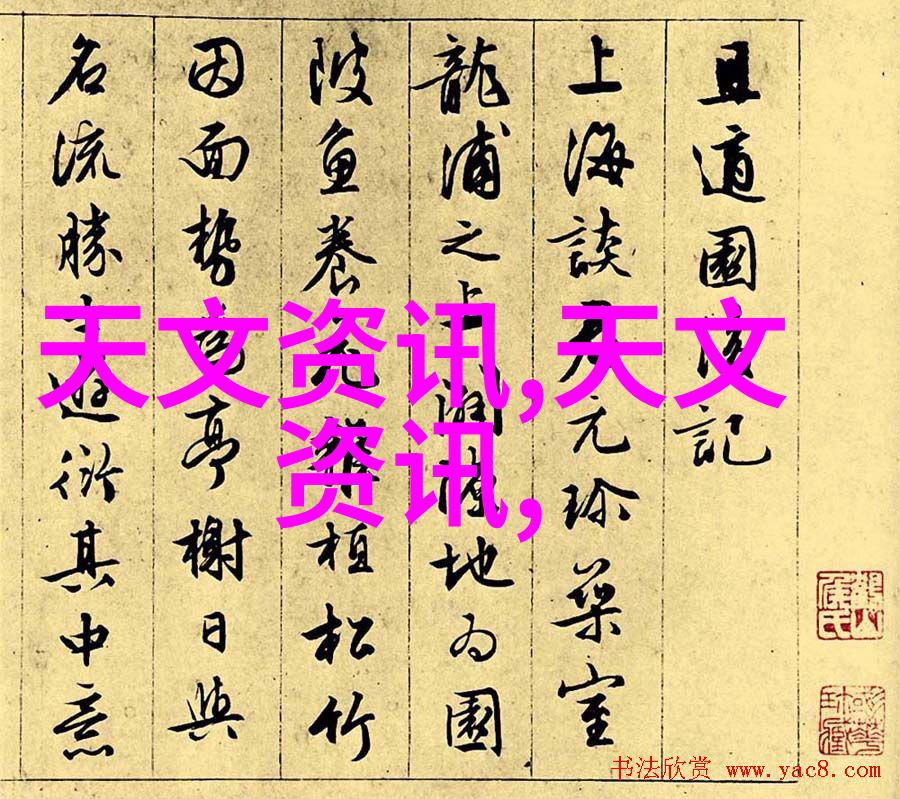 且適園後記
上海談君元珍築室
龍浦之上闢隙地為園
陂魚養花植松竹
因面勢為亭榭日與
名流勝士遊衍其中意
天文资讯,天文
资讯,
书法欣赏 www.yac8.com